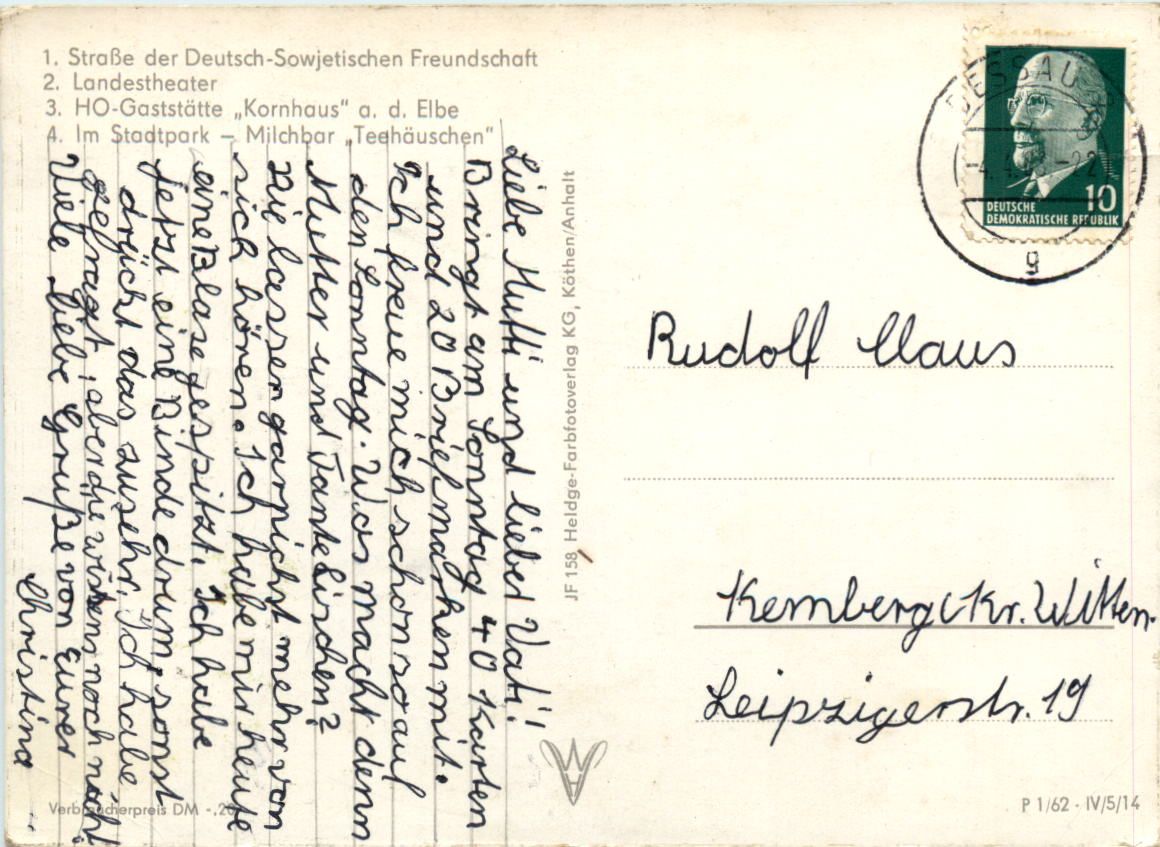 1. Straße der Deutsch-Sowjetischen Freundschaft
2. Landestheater
3. HO-Gaststätte „Kornhaus" a. d. Elbe
4. Im Stadtpark – Milchbar „Teehäuschen"
Liebe Mutti und lieber Vati!
Bringt am Sonntag 40 Karten
und 20 Briefmarken mit.
Ich freue mich schon so auf
den Sonntag. Was macht denn
Mutter und Tante Lischen?
Die lassen garnicht mehr von
sich hören. Ich habe mir heute
eine Blase gespitzt. Ich habe
jetzt eine Binde drum, sonst
drückt das zusehr. Ich habe
gefragt, aber die wissen noch nicht
Viele liebe Grüße von Eurer
Christina
Verbraucherpreis DM -,20
JF 158 Heldge-Farbfotoverlag KG, Köthen/Anhalt
DESSAU
-4.4. -22
g
10
DEUTSCHE
DEMOKRATISCHE REPUBLIK
Rudolf Claus
Kemberg (Kr. Witten.
Leipzigerstr. 19
P 1/62 · IV/5/14